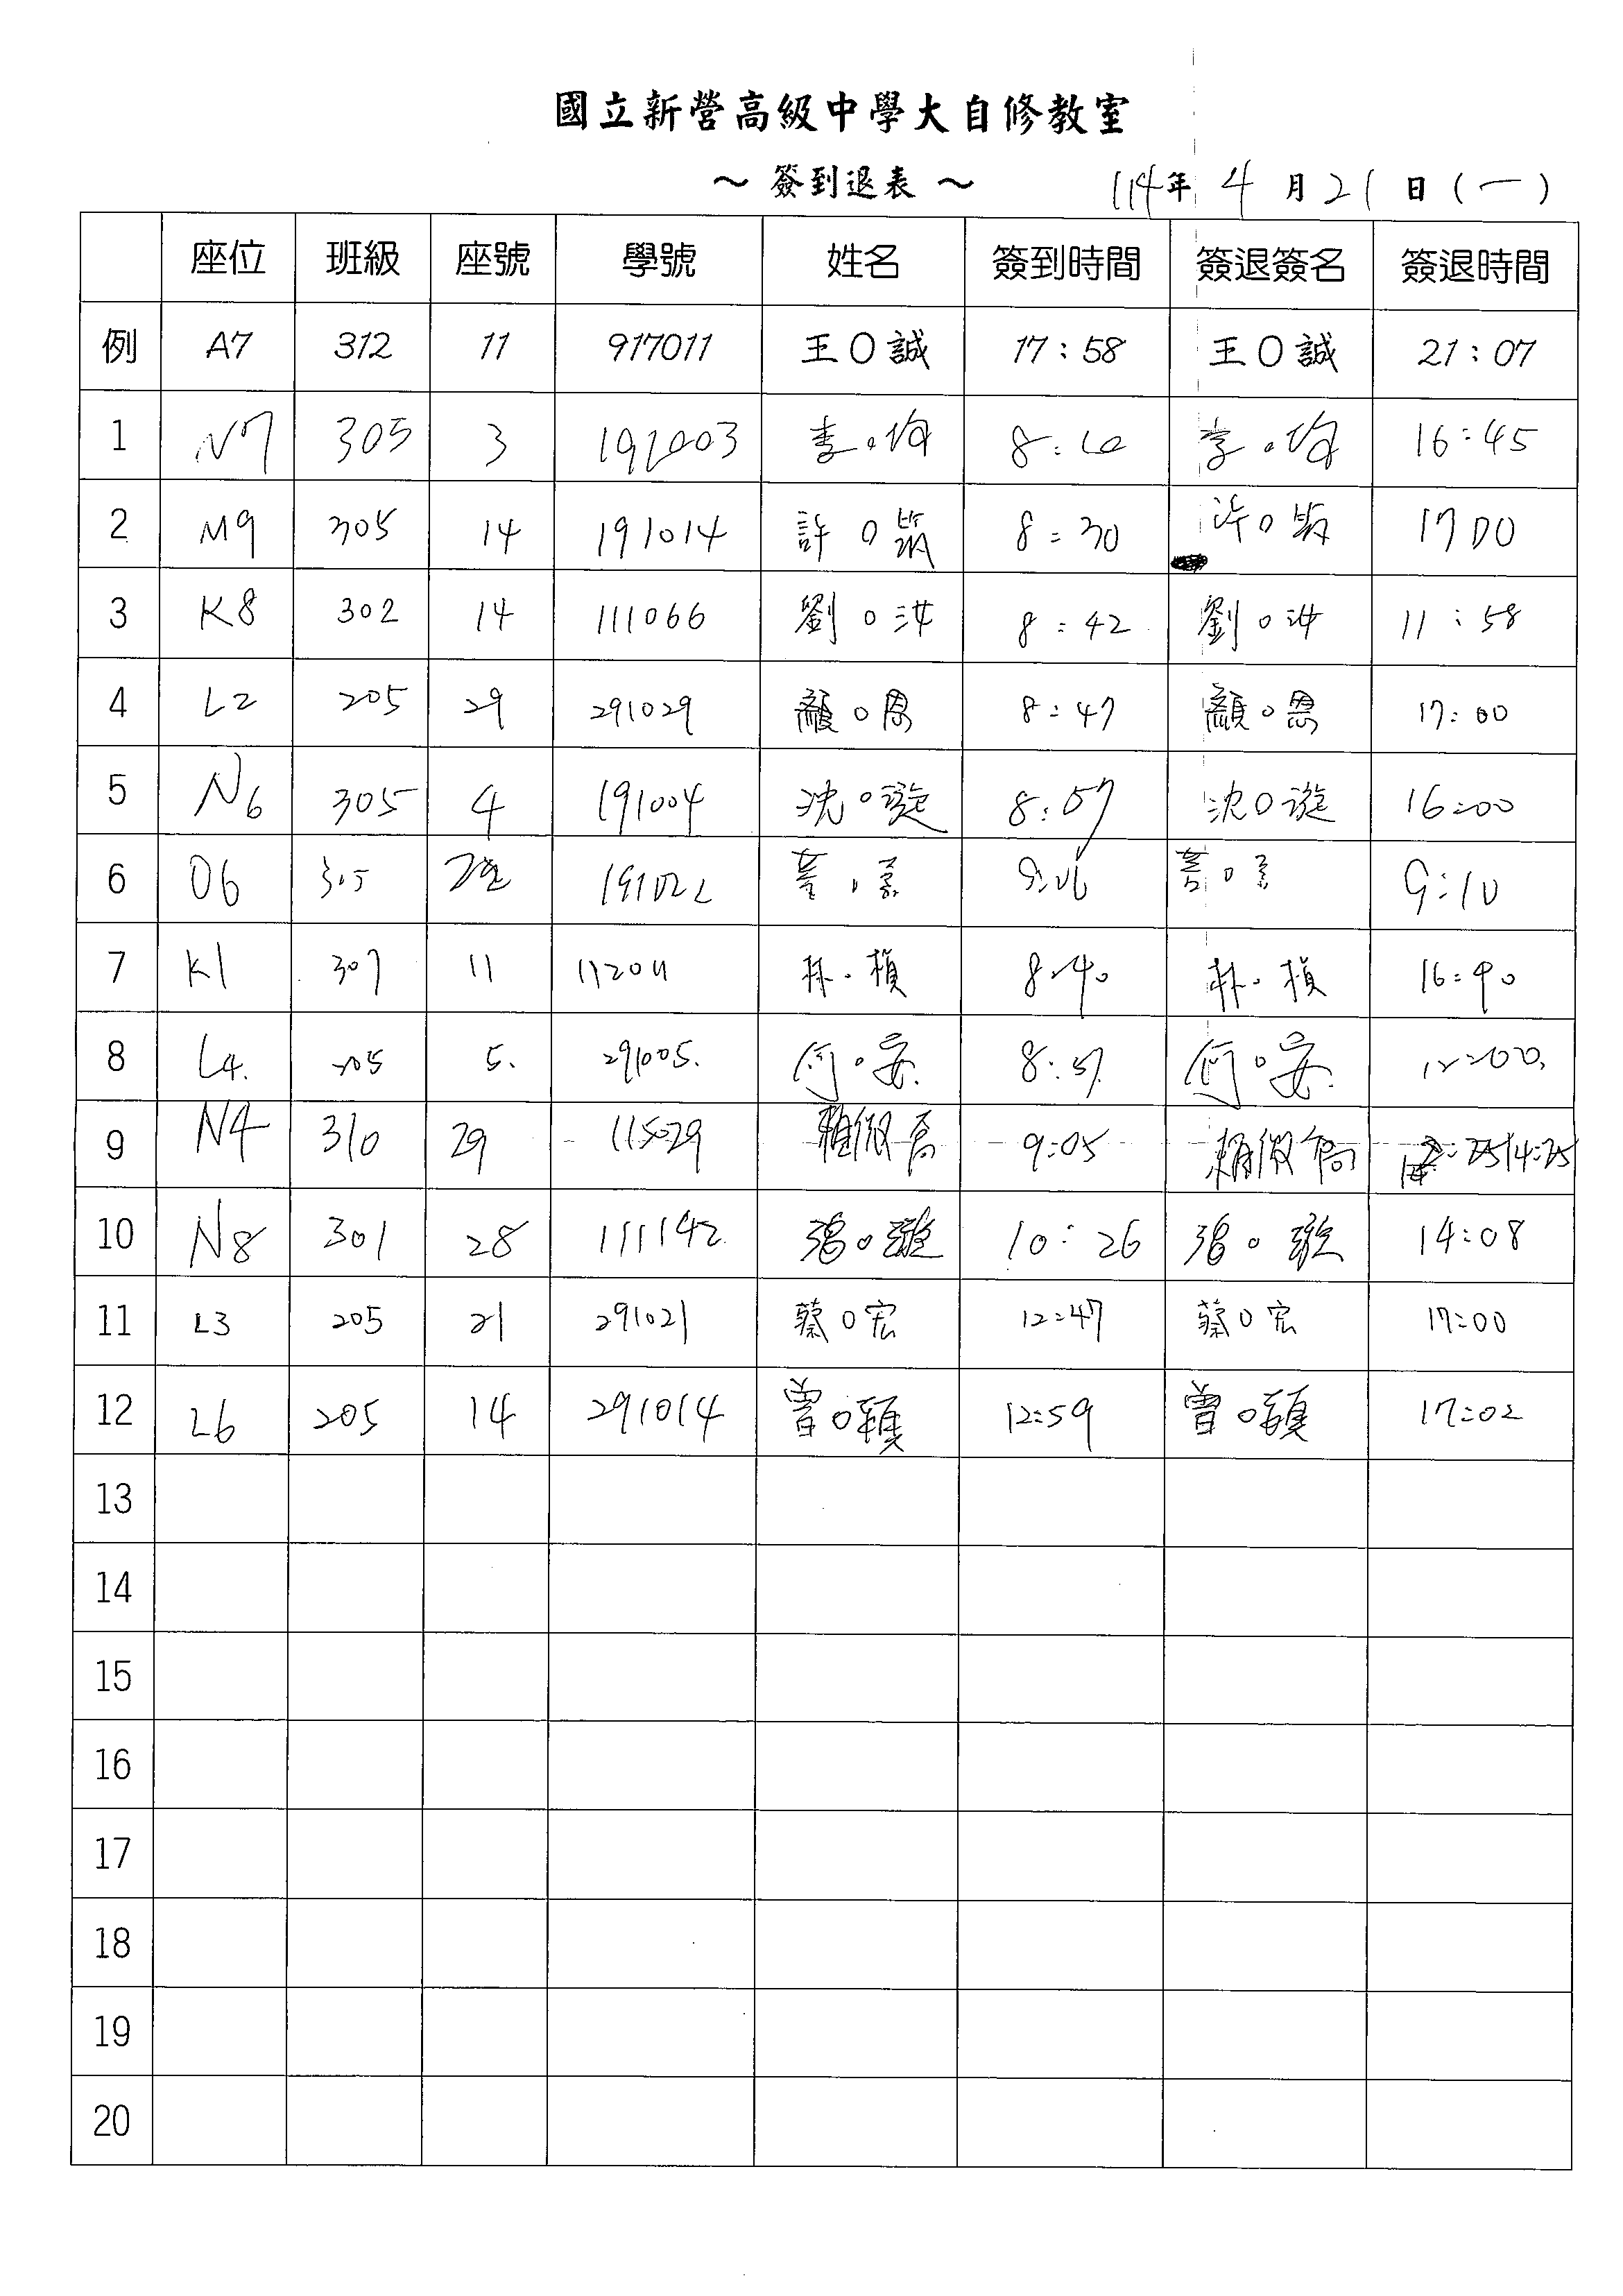 國立新營高級中學大自修教室
～ 簽到退表 ～ 114年 4 月 21 日 (一)
座位 班級 座號 學號 姓名 簽到時間 簽退簽名 簽退時間
例 A7 312 11 917011 王O誠 17:58 王O誠 21:07
1 N7 305 3 191003 李 8: 李 16:45
2 M9 305 14 191014 許O筑 8:30 許O 1700
3 K8 302 14 111066 劉O 8:42 劉O 11:58
4 L2 205 29 291029 顏O恩 8:47 顏O恩 17:00
5 N6 305 4 191004 沈O璇 8:57 沈O璇 16:00
6 O6 305 191022 9:06 9:10
7 K1 307 11 112011 林.楨 8:40 林.楨 16:40
8 L4. 205 5. 291005. 何O安. 8:51. 何O安. 12:00.
9 N4 310 29 115029 賴微喬 9:05 賴微喬 14:25
10 N8 301 28 111142 O璇 10:26 O璇 14:08
11 L3 205 21 291021 蔡O宏 12:47 蔡O宏 17:00
12 L6 205 14 291014 曾O穎 12:59 曾O穎 17:02
13
14
15
16
17
18
19
20